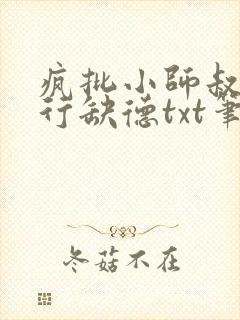 疯批小师叔
行缺德txt笔
冬菇不在